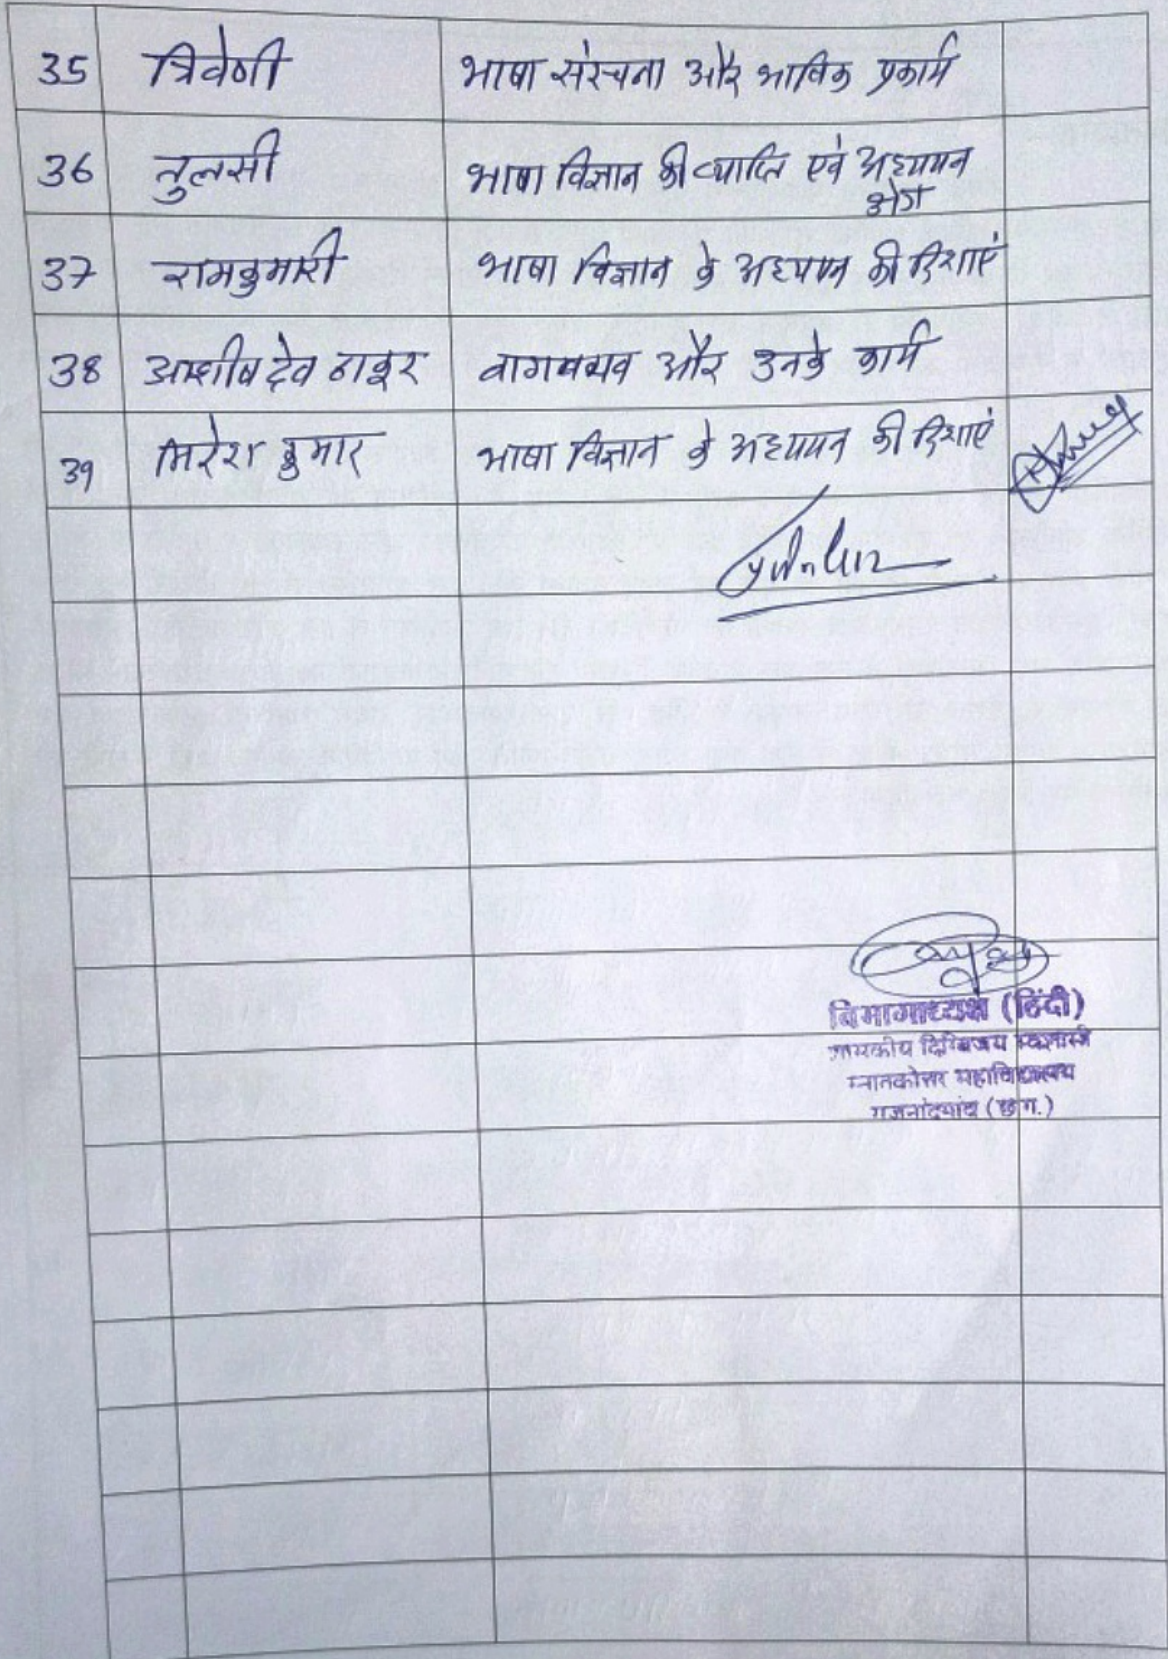 35 त्रिवेणी भाषा संरचना और भाषिक प्रकार्य
36 तुलसी भाषा विज्ञान की व्याप्ति एवं अध्ययन
क्षेत्र
37 रामकुमारी भाषा विज्ञान के अध्ययन की दिशाएं
38 आशीष देव ठाकुर वागवयव और उनके कार्य
39 मिरेश कुमार भाषा विज्ञान के अध्ययन की दिशाएं
विभागाध्यक्ष (हिंदी)
शासकीय दिग्विजय स्वशासी
स्नातकोत्तर महाविद्यालय
राजनांदगांव (छ.ग.)